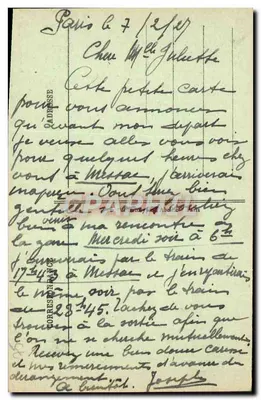 Paris le 7/2/27
Chère Mlle Juliette
Cette petite carte
pour vous annoncer
qu'avant mon depart
je veux aller vous voir
pour quelques heures chez
vous à Messac, j'arriverais
Vous serez bien
gentille si vous voudriez
venir
bien à ma rencontre à
la gare Mercredi soir à 6h
j'arriverais par le train de
17h43 à Messac et je repartirais
le même soir par le train
de 23h45. Tachez de vous
trouver à la sortie afin que
l'on ne se cherche mutuellement.
Recevez une bien douce caresse
et mes remerciements d'avance du
derangement.
A bientôt. Joseph
ADRESSE
CORRESPONDANCE